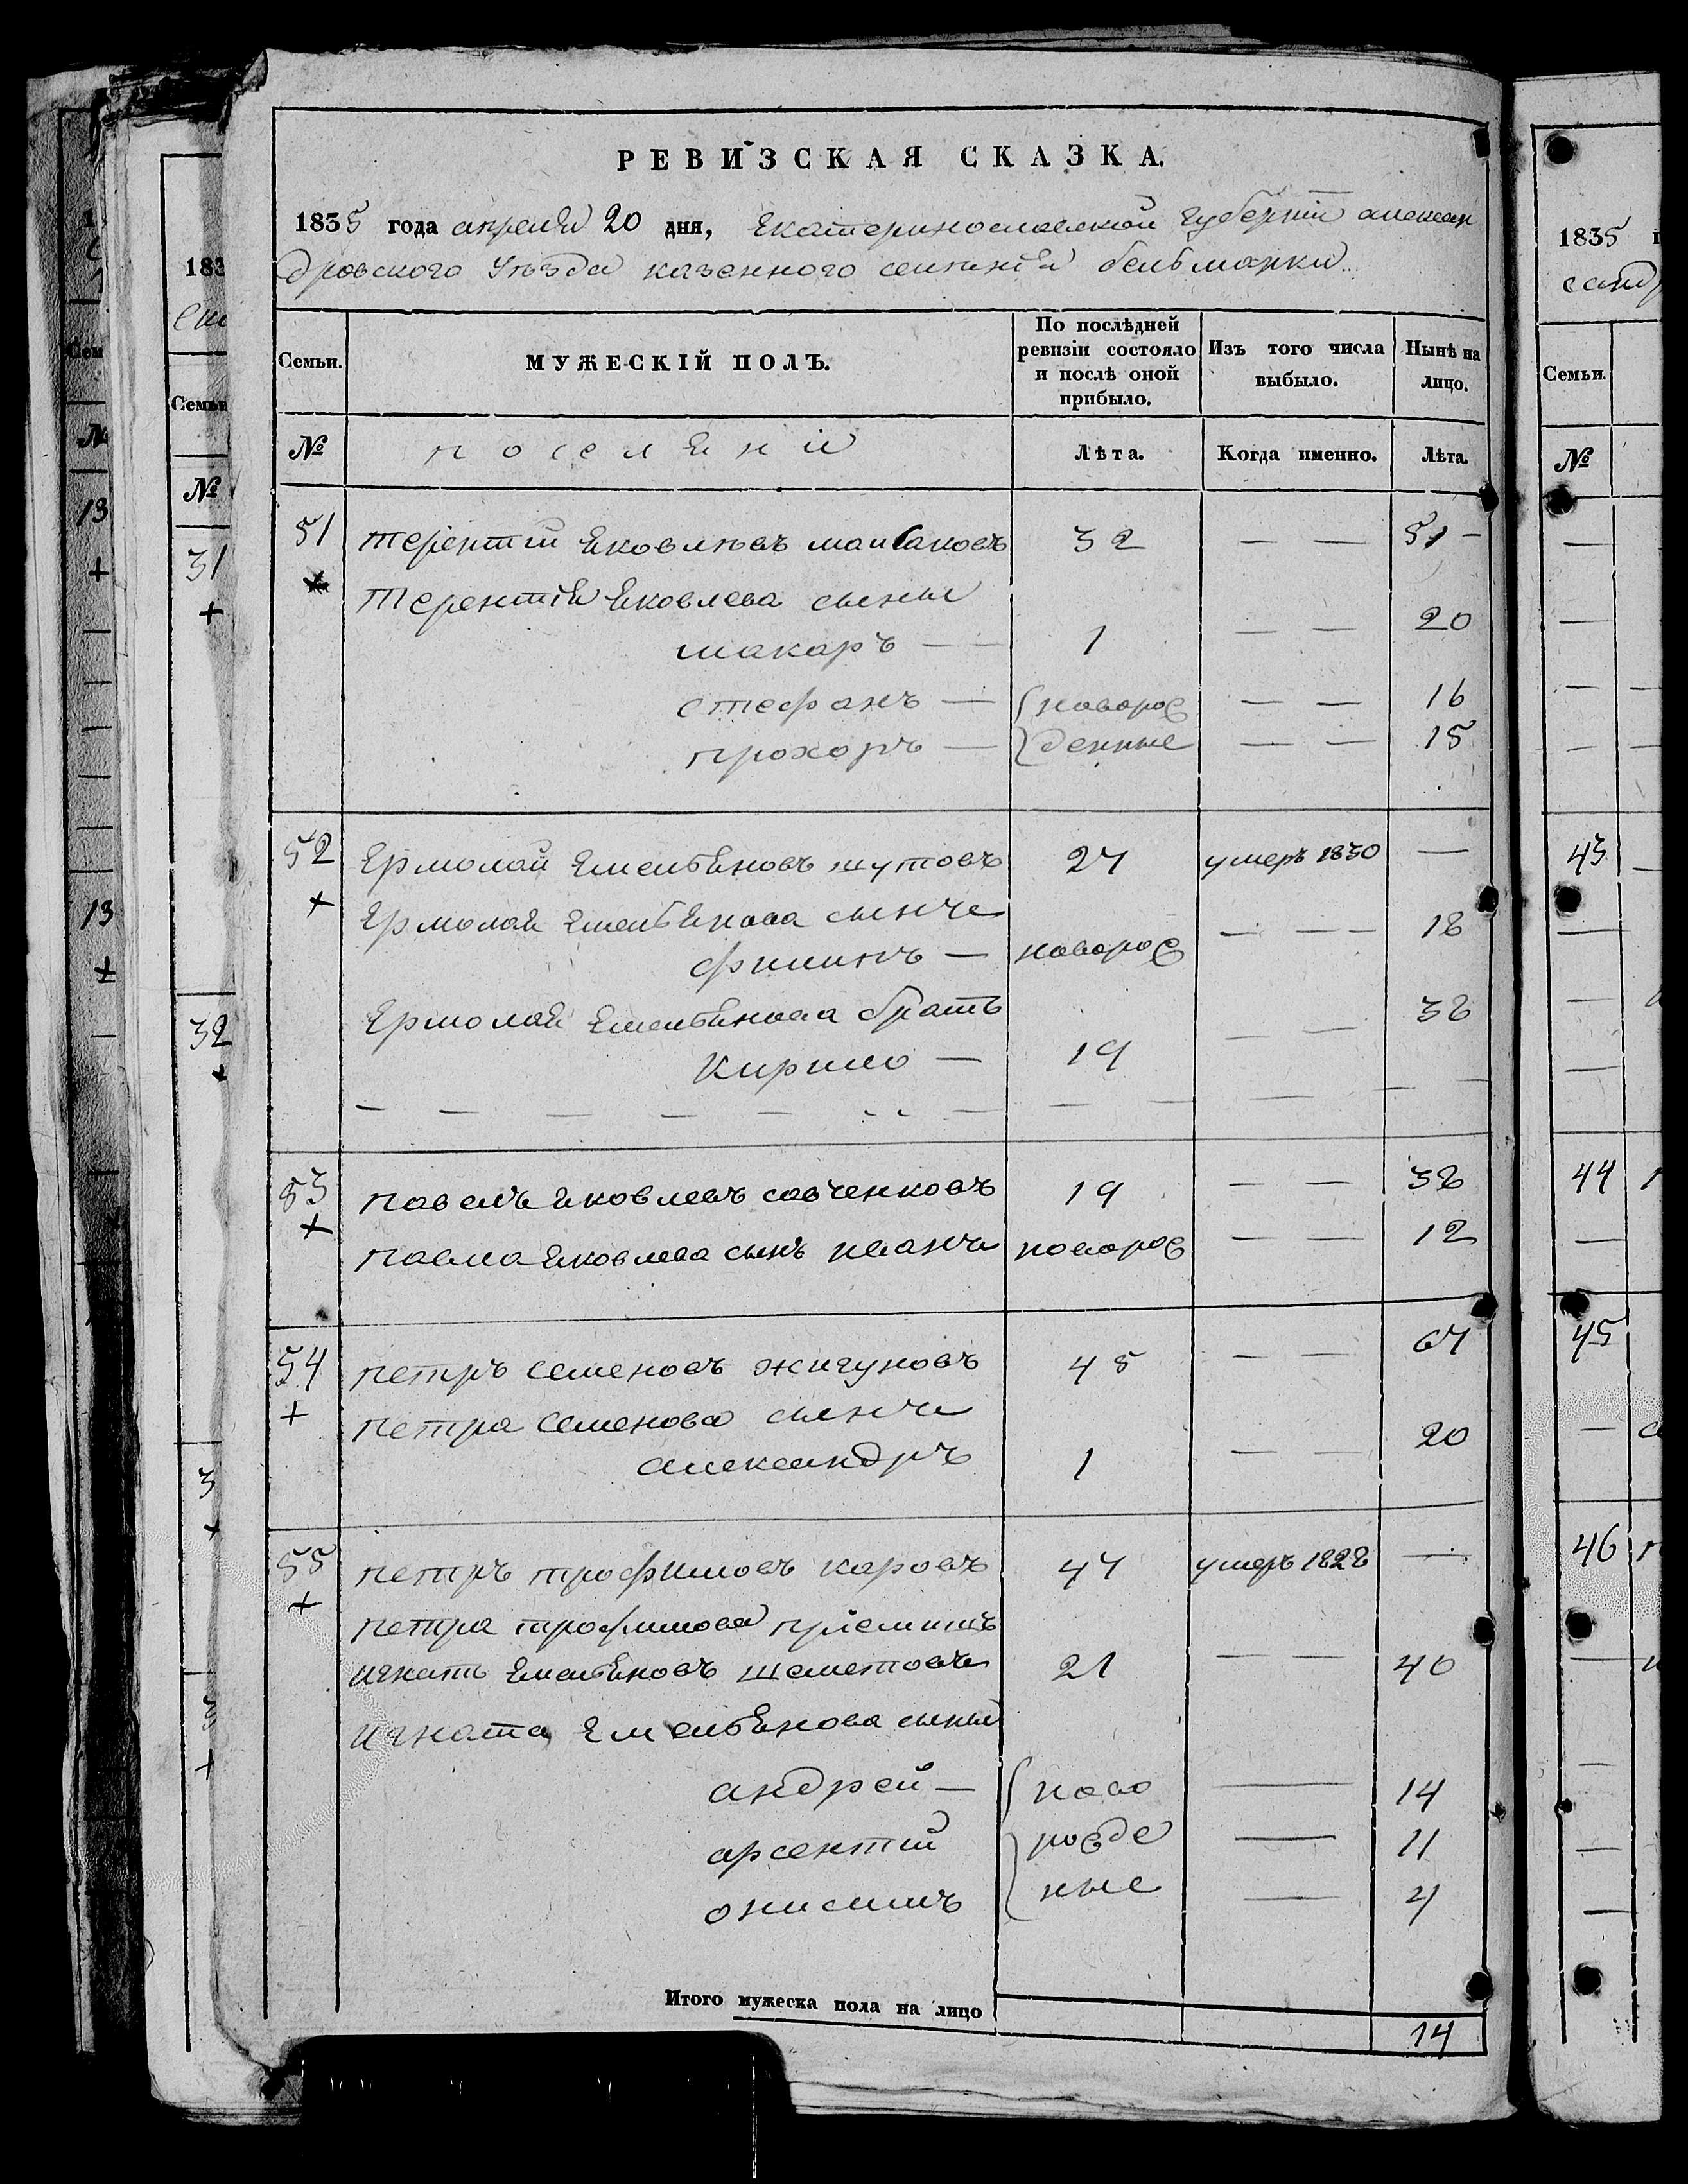 РЕВИЗСКАЯ СКАЗКА.
1835 года апреля 20 дня, Екатеринославской Губернiи алексан
дровского Уъзда казенного селенiя бельманки
Семьи. МУЖЕСКІЙ ПОЛЪ. По послѣдней ревизіи состояло и послѣ оной прибыло. Изъ того числа выбыло. Нынѣ на лицо.
№ поселянiя Лѣта. Когда именно. Лѣта.
51 терентiй Яковлевъ 32 — — 51 —
Терентiя Яковлева сыны
макаръ — — 1 — — 20
стефанъ — новорож — — 16
прохоръ — денные — — 15
52 Ермолай Емельяновъ шутовъ 27 умеръ 1830 —
+ Ермолая Емельянова сынъ
филипъ — новорож — — — 18
Ермолая Емельянова братъ
Кирило — 19 — — 38
53 павелъ Яковлевъ савченковъ 19 — — 38
+ павла Яковлева сынъ иванъ новорож — — 12
54 петръ семеновъ жигуновъ 48 — — 67
+ петра семенова сынъ
александръ 1 — — 20
55 петръ трофимовъ каровъ 47 умеръ 1828 —
+ петра трофимова прiемишъ
игнатъ Емельяновъ шеметовъ 21 — — 40
игната Емельянова сыны
андрей — ново — 14
арсентiй рожде — 11
онисимъ ные — 4
Итого мужеска пола на лицо 14
1835
Семьи.
№
43
44
45
46
183
Семьи
№
31
+
32
13
+
13